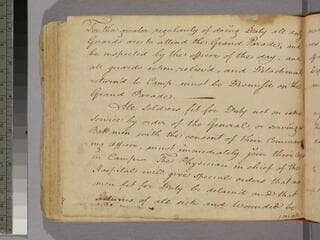 For the greater regularity of doing Duty all the
Guards are to attend the Grand Parade, and
be inspected by the officer of the day, and
all guards when relieved, and Detachments
in Camp must be Dismiss'd on the
Grand Parade.
All Soldiers fit for Duty not on extra
Service by order of the General, or serving as
Batt men with the consent of their Command
ing officer, must immediately join their
in Camp. The Physician in chief of the
Hospital will give special orders that no
men fit for Duty be detain'd and that
Returns of all sick and Wounded be